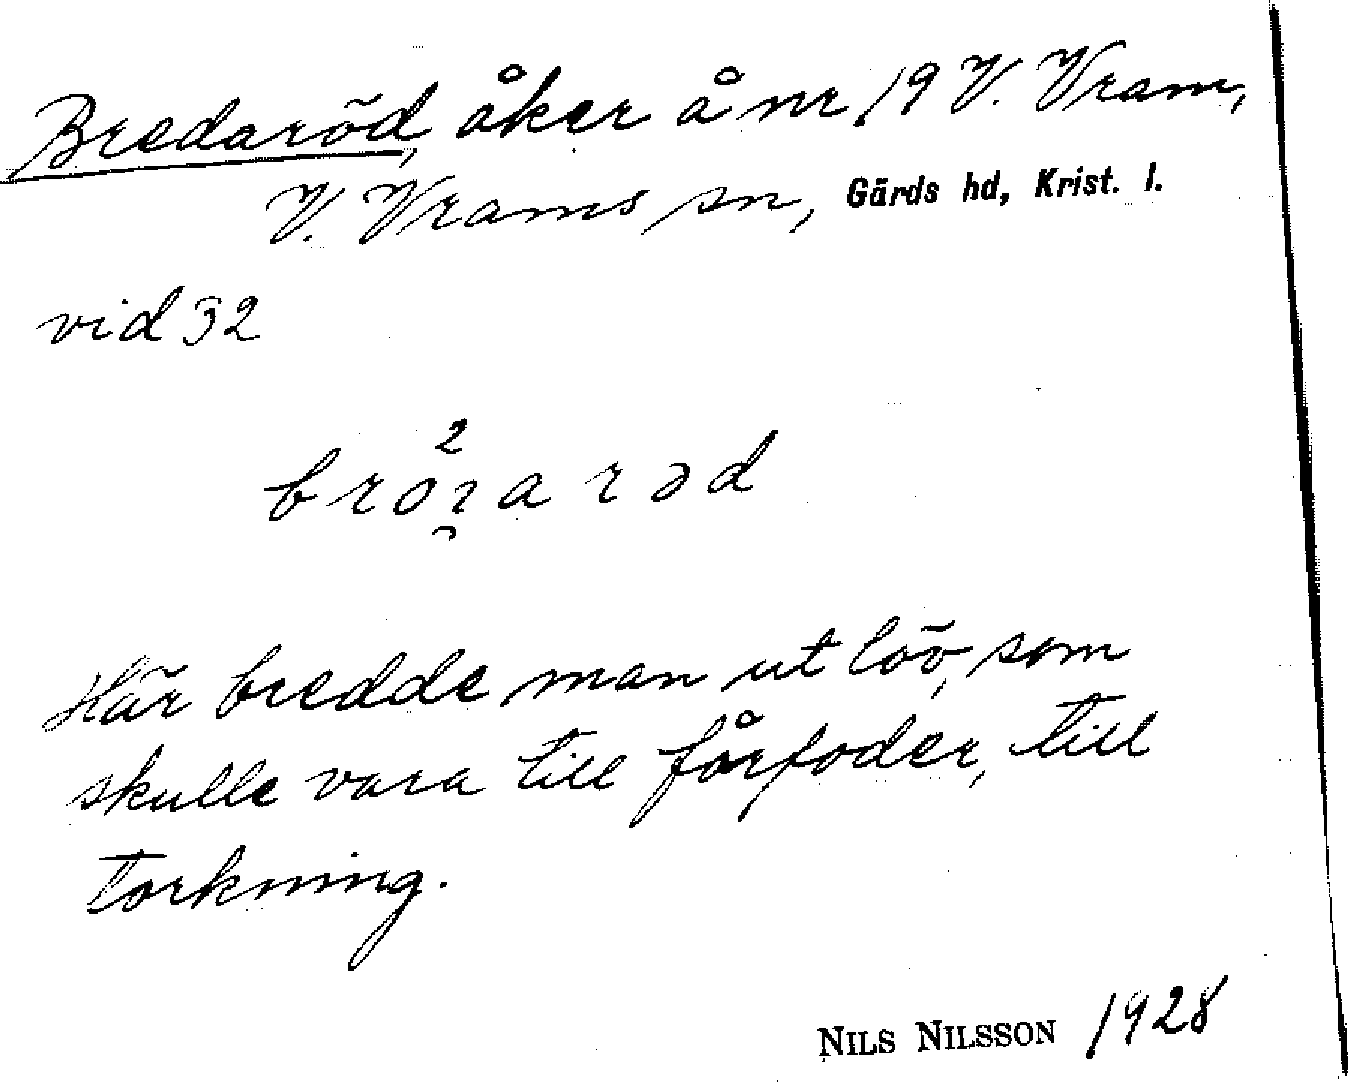 Bredaröd, åker å nr 19 V. Vram,
V. Vrams sn, Gärds hd, Krist. l.
vid 32
Här bredde man ut löv, som
skulle vara till fårfoder, till
torkning.
NILS NILSSON 1928